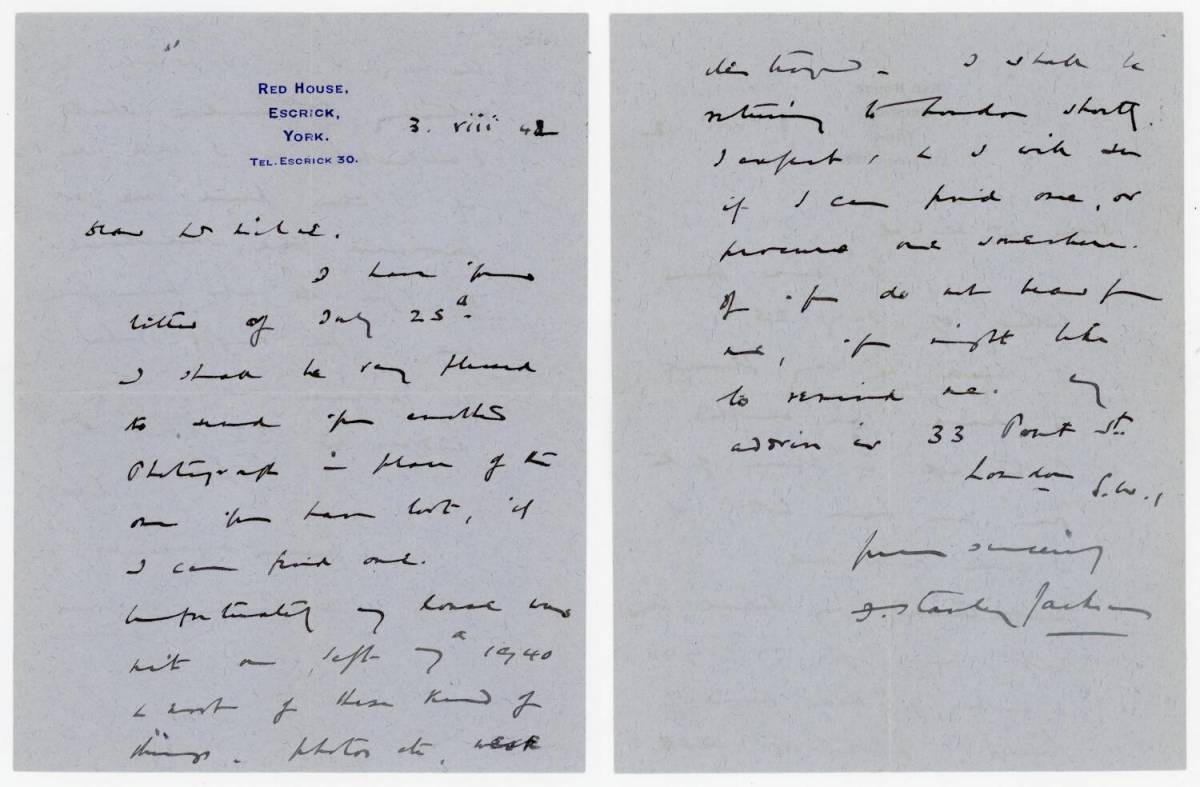 RED HOUSE,
ESCRICK,
YORK.
TEL. ESCRICK 30.
3. viii 42
Dear
I have your
letter of July 25th
I shall be very pleased
to send you another
Photograph in place of the
one you have lost, if
I can find one.
Unfortunately my house was
hit on Sept 1940
& most of these kind of
things - photos etc, were
destroyed - I shall be
returning to London shortly
I expect, & I will see
if I can find one, or
procure one somewhere.
If you do not hear from
me, you might like
to remind me. My
address is 33 Pont St.
London S.W.1
Yours sincerely
F. Stanley Jackson